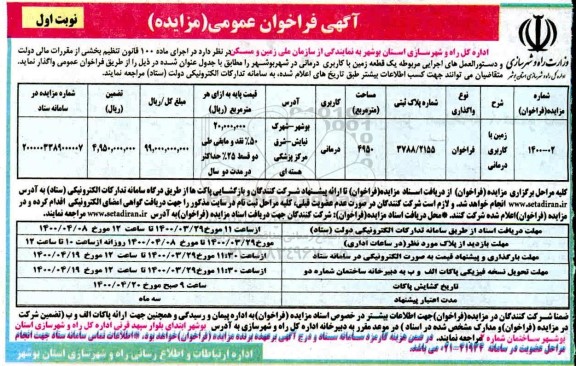 آگهی فراخوان عمومی(مزایده)
نوبت اول
وزارت راه و شهرسازی
اداره کل راه و شهرسازی استان بوشهر به نمایندگی از سازمان ملی زمین و مسکن در نظر دارد در اجرای ماده ۱۰۰ قانون تنظیم بخشی از مقررات مالی دولت
و دستورالعمل های اجرایی مربوطه یک قطعه زمین با کاربری درمانی در شهر بوشهر را مطابق با جدول عنوان شده در ذیل را از طریق فراخوان عمومی واگذار نماید.
متقاضیان می توانند جهت کسب اطلاعات بیشتر طبق تاریخ های اعلام شده، به سامانه تدارکات الکترونیکی دولت (ستاد) مراجعه نمایند.
شماره مزایده(فراخوان) شرح نوع واگذاری شماره پلاک ثبتی مساحت (مترمربع) کاربری آدرس قیمت پایه به ازای هر مترمربع (ریال) مبلغ کل/ریال تضمین (ریال) شماره مزایده در سامانه ستاد
۱۴۰۰-۰۲ زمین با کاربری درمانی فراخوان ۳۷۸۸/۲۱۵۵ ۴۹۵۰ درمانی بوشهر-شهرک نیایش-شرق مرکز پزشکی هسته ای ۲۰,۰۰۰,۰۰۰ ۵۰٪ نقد و مابقی طی دو قسط ۲۵٪ حداکثر در مدت دو سال ۹۹,۰۰۰,۰۰۰,۰۰۰ ۴,۹۵۰,۰۰۰,۰۰۰ ۲۰۰۰۰۰۳۳۸۹۰۰۰۰۰۷
کلیه مراحل برگزاری مزایده (فراخوان) از دریافت اسناد مزایده(فراخوان) تا ارائه پیشنهاد شرکت کنندگان و بازگشایی پاکت ها از طریق درگاه سامانه تدارکات الکترونیکی (ستاد) به آدرس
www.setadiran.ir انجام خواهد شد. و لازم است شرکت کنندگان در صورت عدم عضویت قبلی، کلیه مراحل ثبت نام در سایت مذکور را جهت دریافت گواهی امضای الکترونیکی اقدام کرده و در
مزایده (فراخوان) اعلام شده شرکت کنند. *محل دریافت اسناد مزایده(فراخوان): شرکت کنندگان جهت دریافت اسناد مزایده (فراخوان)به آدرس www.setadiran.ir مراجعه نمایند.
مهلت دریافت اسناد از طریق سامانه تدارکات الکترونیکی دولت (ستاد) از ساعت ۱۱ مورخ ۱۴۰۰/۰۳/۲۹ تا ساعت ۱۲ مورخ ۱۴۰۰/۰۴/۰۸
مهلت بازدید از پلاک مورد نظر(در ساعات اداری) مورخ ۱۴۰۰/۰۳/۲۹ تا مورخ ۱۴۰۰/۰۴/۰۸ روزانه از ساعت ۱۰ تا ساعت ۱۲
مهلت بارگذاری و پیشنهاد قیمت به صورت الکترونیکی در سامانه ستاد از ساعت ۱۱:۳۰ مورخ ۱۴۰۰/۰۳/۲۹ تا ساعت ۱۲ مورخ ۱۴۰۰/۰۴/۱۹
مهلت تحویل نسخه فیزیکی پاکات الف و ب به دبیرخانه ساختمان شماره دو از ساعت ۱۱:۳۰ مورخ ۱۴۰۰/۰۳/۲۹ تا ساعت ۱۲ مورخ ۱۴۰۰/۰۴/۱۹
تاریخ گشایش پاکات ساعت ۹ صبح مورخ ۱۴۰۰/۰۴/۲۰
مدت اعتبار پیشنهاد سه ماه
ضمنا شرکت کنندگان در مزایده(فراخوان)جهت اطلاعات بیشتر در خصوص اسناد مزایده (فراخوان)به اداره پیمان و رسیدگی و همچنین جهت ارائه پاکات الف و ب (تضمین شرکت
در مزایده(فراخوان)و مدارک مشخص شده در اسناد) در موعد مقرر به دبیرخانه اداره کل راه و شهرسازی به آدرس بوشهر ابتدای بلوار سپهبد قرنی اداره کل راه و شهرسازی استان
بوشهر ساختمان شماره ۲ مراجعه نمایند. در ضمن هزینه کارمزد سامانه ستاد و درج آگهی بر عهده برنده مزایده (فراخوان)خواهد بود. *اطلاعات تماس سامانه ستاد جهت انجام
مراحل عضویت در سامانه ۴۱۹۳۴-۰۲۱ می باشد.
اداره ارتباطات و اطلاع رسانی راه و شهرسازی استان بوشهر